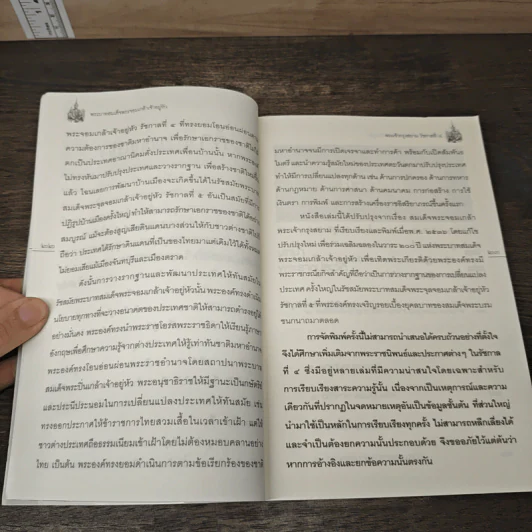 พระบาทสมเด็จพระจอมเกล้าเจ้าอยู่หัว
พระจอมเกล้าเจ้าอยู่หัว รัชกาลที่ ๔ ที่ทรงยอมโอนอ่อนผ่อนตาม
ความต้องการของชาติมหาอำนาจ เพื่อรักษาเอกราชของชาติ
ตกเป็นประเทศอาณานิคมดังประเทศเพื่อนบ้านนั้น หากพระองค์
ไม่ทรงหันมาปรับปรุงประเทศและวางรากฐาน เพื่อสร้างไทย
แล้ว ไฉนเลยการพัฒนาบ้านเมืองจะเกิดขึ้นได้ในรัชสมัยพระบาท
สมเด็จพระจุลจอมเกล้าเจ้าอยู่หัว รัชกาลที่ ๕ อันเป็นสมัยที่มีการ
ปฏิรูปบ้านเมืองครั้งใหญ่ ทำให้สามารถรักษาเอกราชของชาติได้
สมบูรณ์ แม้จะต้องสูญเสียดินแดนบางส่วนให้กับชาวต่างชาติไป
ถือว่า ประเทศได้รักษาดินแดนที่เป็นของไทยมาแต่เดิมไว้ได้ทั้งหมด
ไม่ยอมเสียแม้เมืองจันทบุรีและเมืองตราด
ดังนั้นการวางรากฐานและพัฒนาประเทศให้ทันสมัย
รัชสมัยพระบาทสมเด็จพระจอมเกล้าเจ้าอยู่หัวนั้น พระองค์ทรงดำเนิน
นโยบายทุกทางที่จะวางอนาคตของประเทศชาติให้สามารถดำรงอยู่ได้
อย่างมั่นคง พระองค์ทรงนำพระราชโอรสพระราชธิดาให้เรียนรู้ภาษา
อังกฤษเพื่อศึกษาความรู้จากต่างประเทศให้รู้เท่าทันชาติมหาอำนาจ
พระองค์ทรงโอนอ่อนผ่อนพระราชอำนาจโดยสถาปนาพระบาท
สมเด็จพระปิ่นเกล้าเจ้าอยู่หัว พระอนุชาธิราชให้มีฐานะเป็นกษัตริย์
และประนีประนอมในการเปลี่ยนแปลงประเทศให้ทันสมัย เช่น
ทรงออกประกาศให้ข้าราชการไทยสวมเสื้อในเวลาเข้าเฝ้า แต่ให้
ชาวต่างประเทศถือธรรมเนียมเข้าเฝ้าโดยไม่ต้องหมอบคลานอย่าง
ไทย เป็นต้น พระองค์ทรงยอมดำเนินการตามข้อเรียกร้องของชาติ
มหาอำนาจจนมีการเปิดเจรจาและทำการค้า พร้อมกับเปิดสัมพันธ
ไมตรี และนำความรู้สมัยใหม่ของประเทศตะวันตกมาปรับปรุงประเทศ
ทำให้มีการเปลี่ยนแปลงทุกด้าน เช่น ด้านการปกครอง ด้านการทหาร
ด้านกฎหมาย ด้านการศาสนา ด้านคมนาคม การก่อสร้าง การใช้
เงินตรา การพิมพ์ และการสร้างเครื่องราชอิสริยาภรณ์ขึ้นครั้งแรก
หนังสือเล่มนี้ได้ปรับปรุงจากเรื่อง สมเด็จพระจอมเกล้า
พระเจ้ากรุงสยาม ที่เรียบเรียงและพิมพ์เมื่อพ.ศ. ๒๕๔๗ โดยแก้ไข
ปรับปรุงใหม่ เพื่อร่วมเฉลิมฉลองในวาระ ๒๐๐ ปี แห่งพระบาทสมเด็จ
พระจอมเกล้าเจ้าอยู่หัว เพื่อเชิดพระเกียรติด้วยพระองค์ทรงมี
พระราชกรณียกิจสำคัญที่ถือว่าเป็นการวางรากฐานของการเปลี่ยนแปลง
ประเทศ ครั้งใหญ่ในรัชสมัยพระบาทสมเด็จพระจุลจอมเกล้าเจ้าอยู่หัว
รัชกาลที่ ๕ ที่พระองค์ทรงเจริญรอยเบื้องยุคลบาทของสมเด็จพระบรม
ชนกนาถมาตลอด
การจัดพิมพ์ครั้งนี้ไม่สามารถนำเสนอได้ครบถ้วนอย่างที่ตั้งใจ
จึงได้ศึกษาเพิ่มเติมจากพระราชนิพนธ์และประกาศต่างๆ ในรัชกาล
ที่ ๔ ซึ่งมีอยู่หลายเล่มที่มีความน่าสนใจโดยเฉพาะสำหรับ
การเรียบเรียงสาระความรู้นั้น เนื่องจากเป็นเหตุการณ์และความ
เดียวกันที่ปรากฏในจดหมายเหตุอันเป็นข้อมูลชั้นต้น ที่ส่วนใหญ่
นำมาใช้เป็นหลักในการเรียบเรียงทุกครั้ง ไม่สามารถหลีกเลี่ยงได้
และจำเป็นต้องยกความนั้นประกอบด้วย จึงขออภัยไว้แต่ต้นว่า
หากการอ้างอิงและยกข้อความนั้นตรงกัน